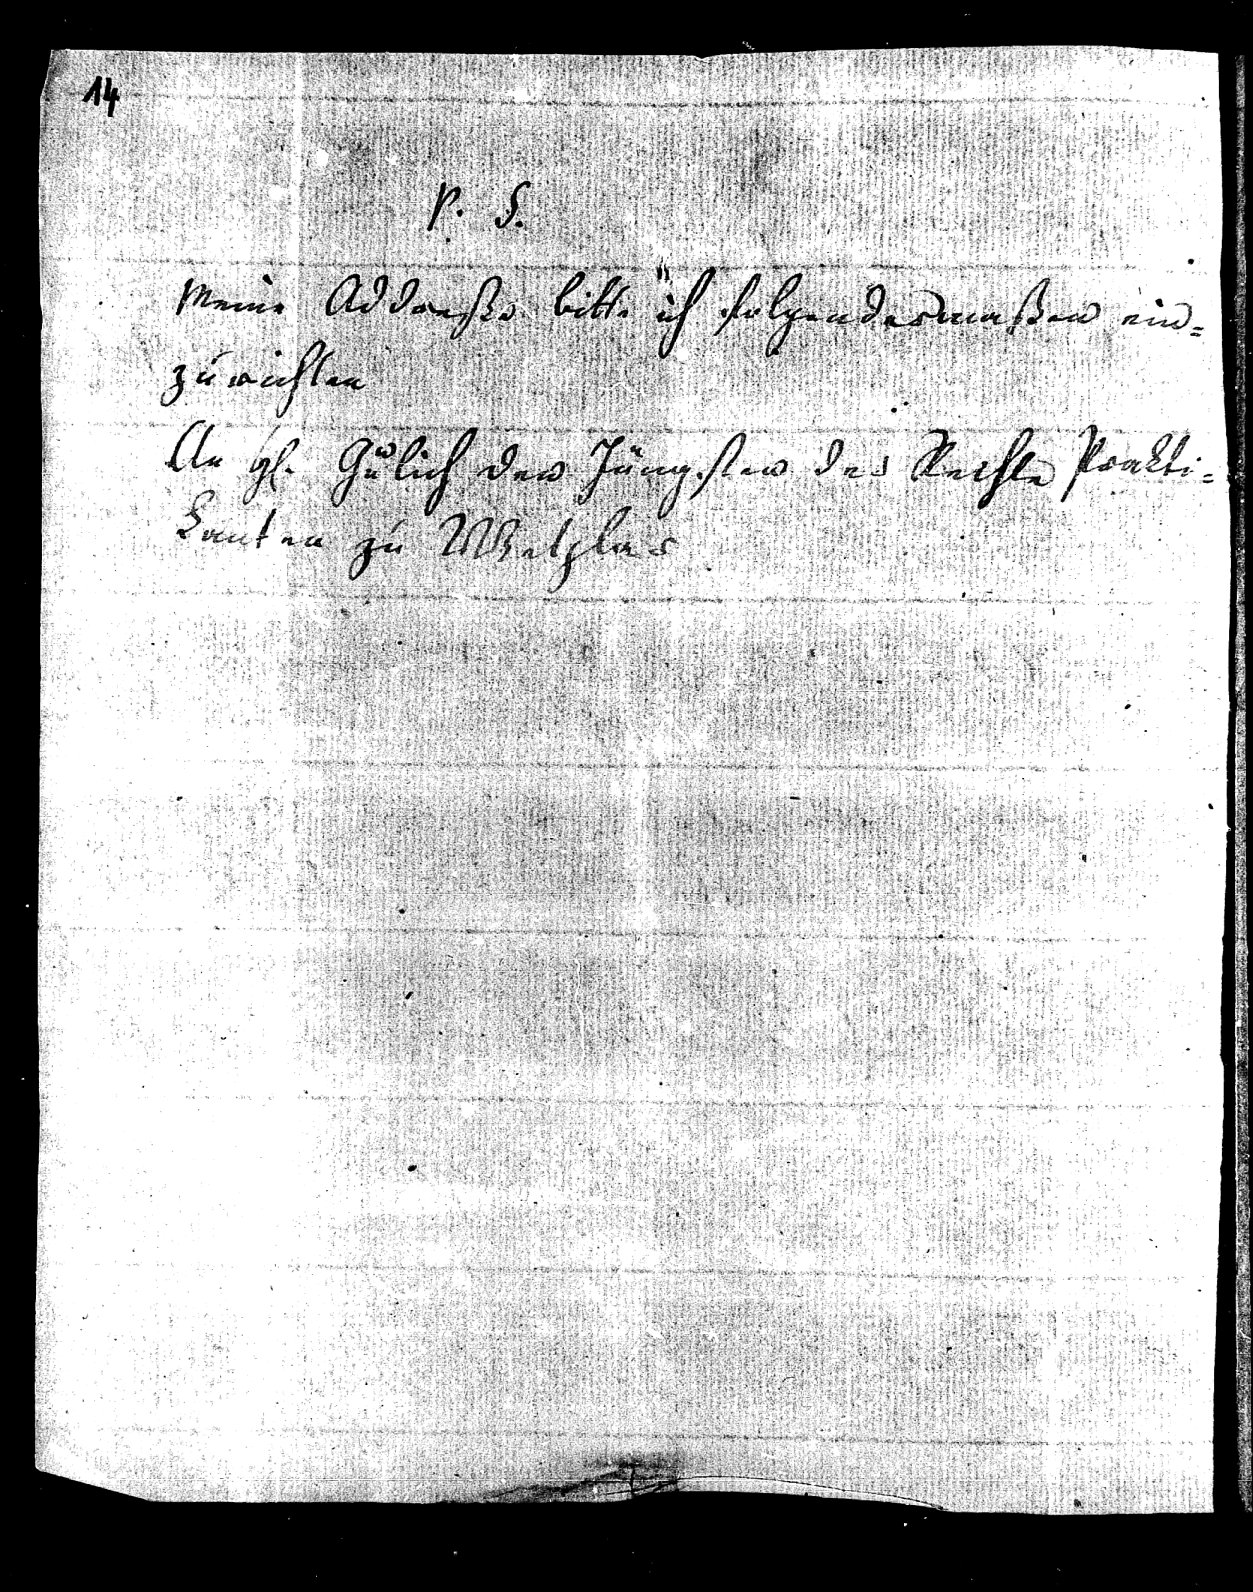 14
P. S.
Meine Addreße bitte ich folgendermaßen ein=
zurichten
An H. Gülich den Jüngsten der Rechte Prakti=
kanten zu Wetzlar